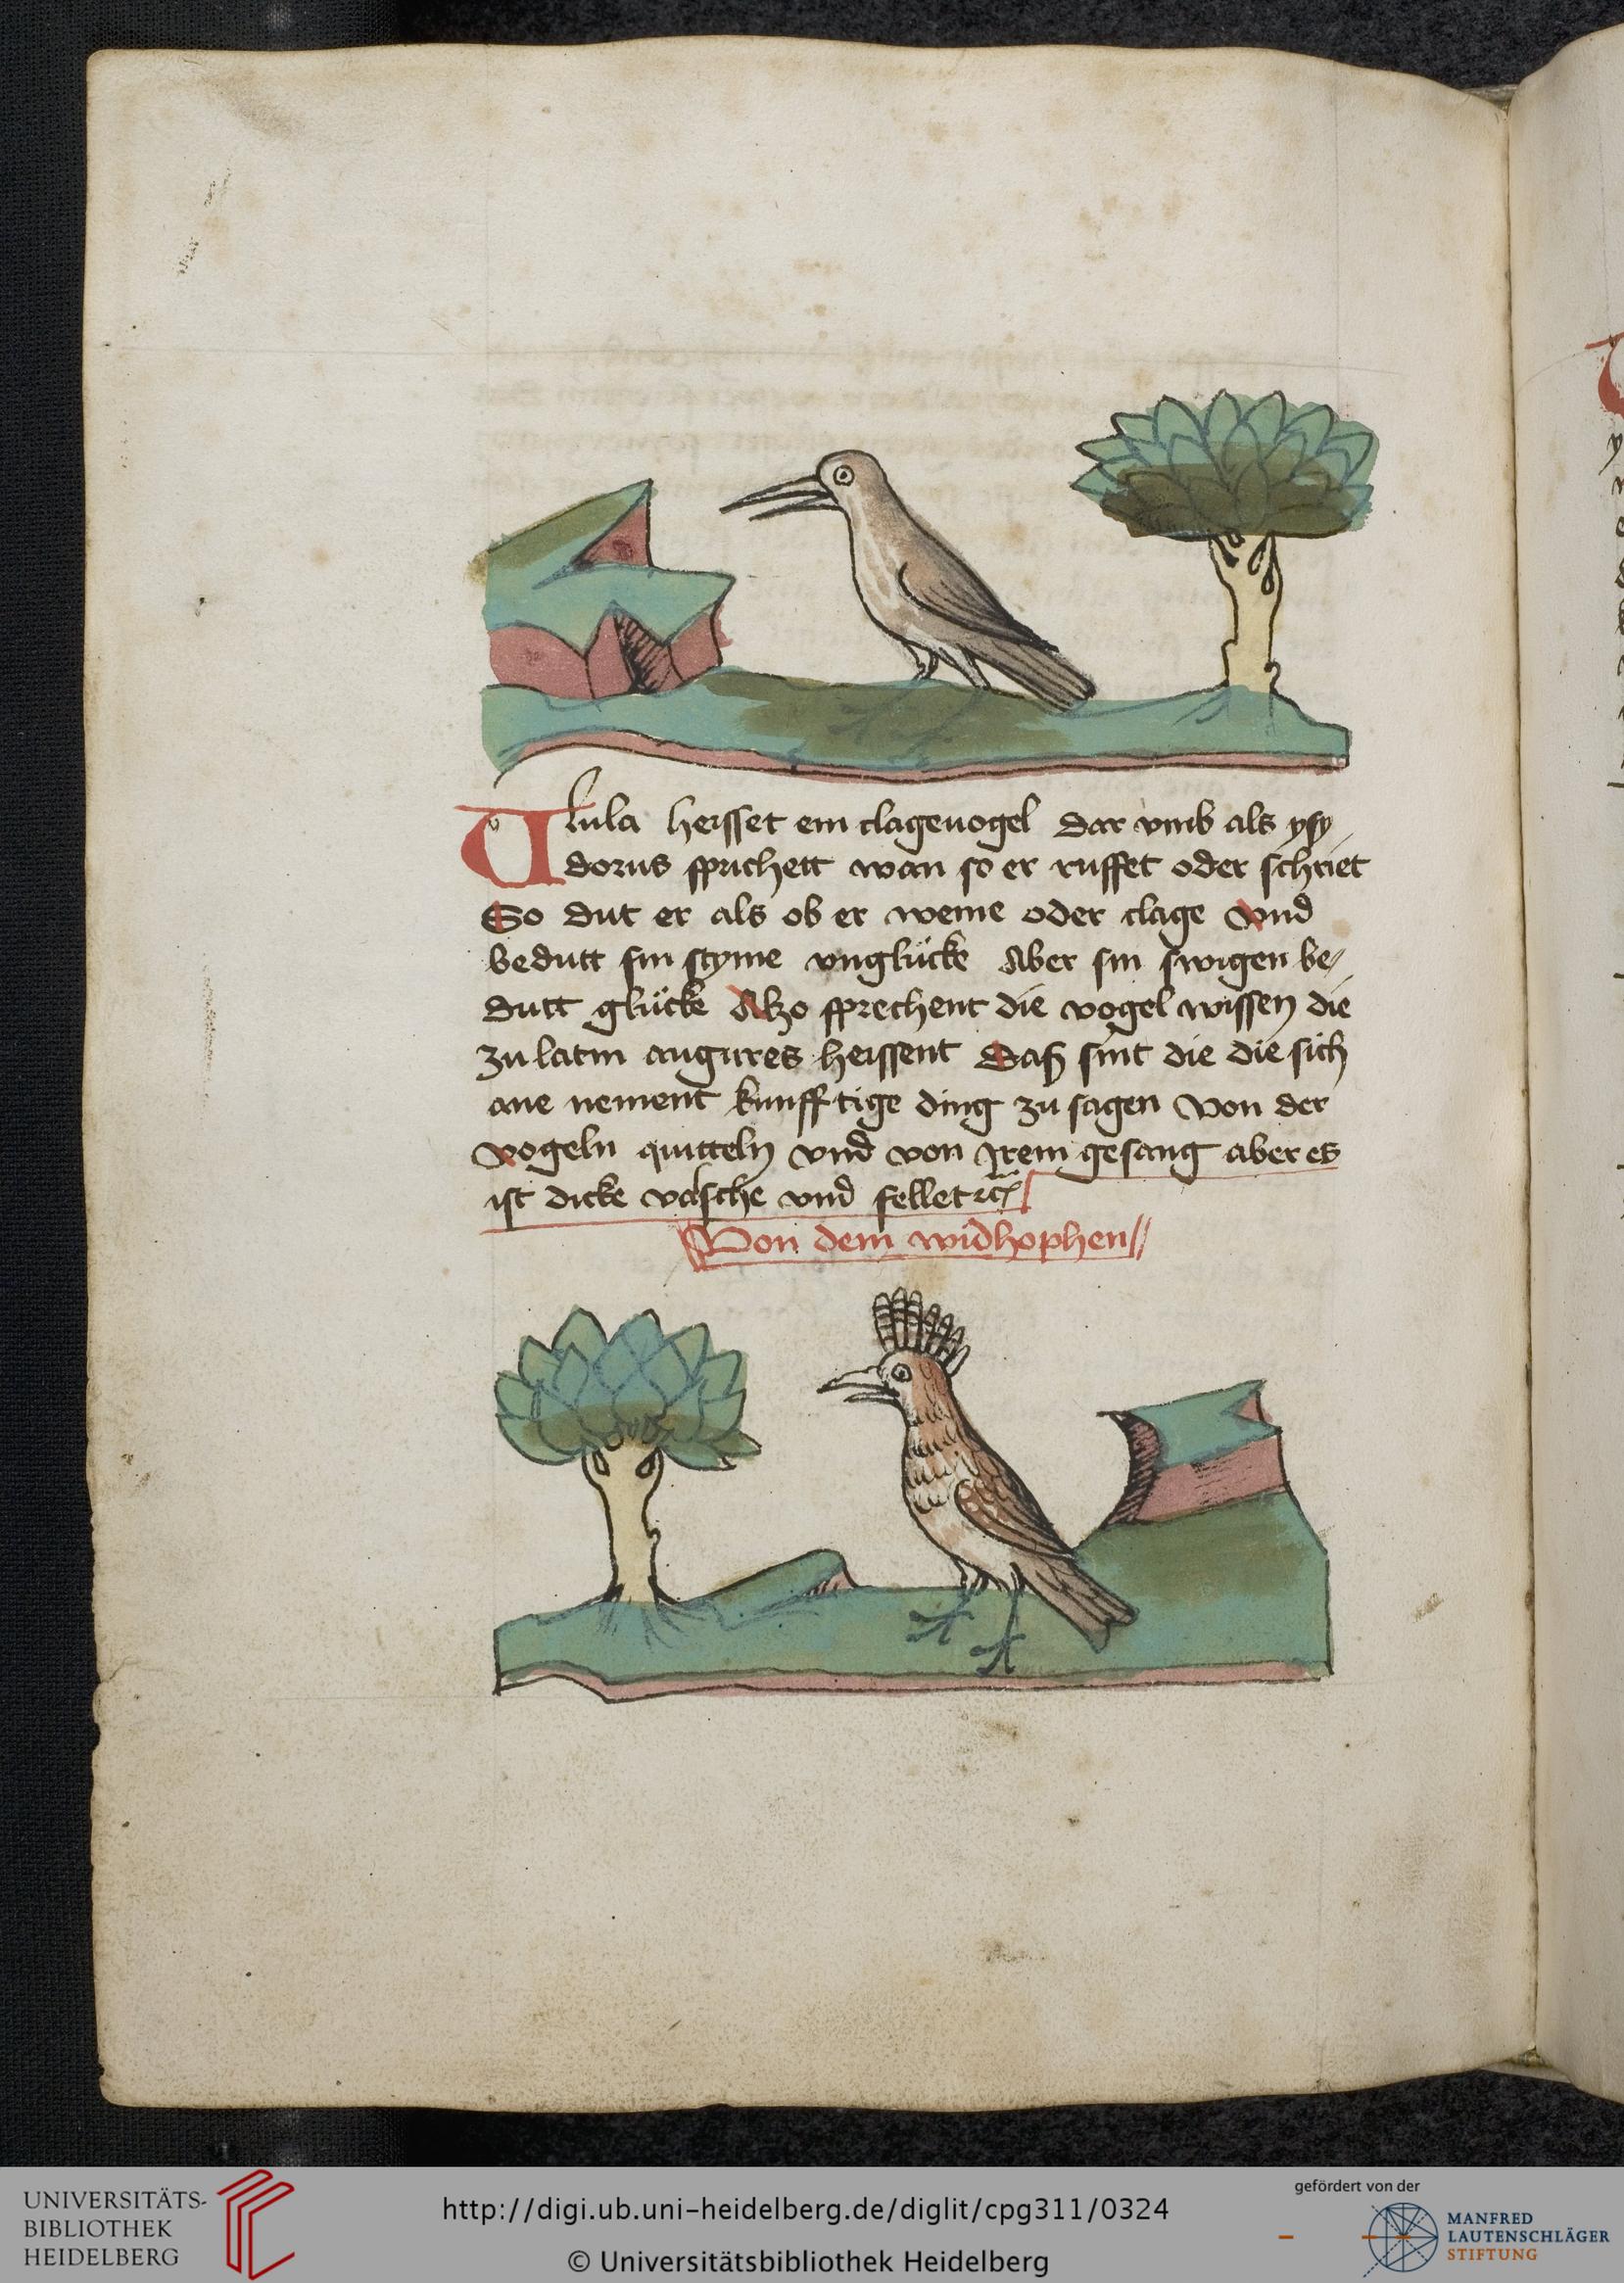 Ulula heisset ein clagevogel Dar vmb als ysy
dorus sprichett wan so er ruffet oder schriet
So dut er als ob er weine oder clage Vnd
bedutt sin styme vnglücke Aber sin swigen be„
dutt glücke Alzo sprechent die vogel wissen die
zu latin augures heissent Daß sint die die sich
ane nement kunfftige ding zu sagen Von der
vogeln quitteln vnd von Jrem gesang aber es
ist dicke valsche vnd fellet rc̄
Von dem widhophen//
UNIVERSITÄTS-
BIBLIOTHEK
HEIDELBERG
http://digi.ub.uni-heidelberg.de/diglit/cpg311/0324
© Universitätsbibliothek Heidelberg
gefördert von der
MANFRED
LAUTENSCHLÄGER
STIFTUNG